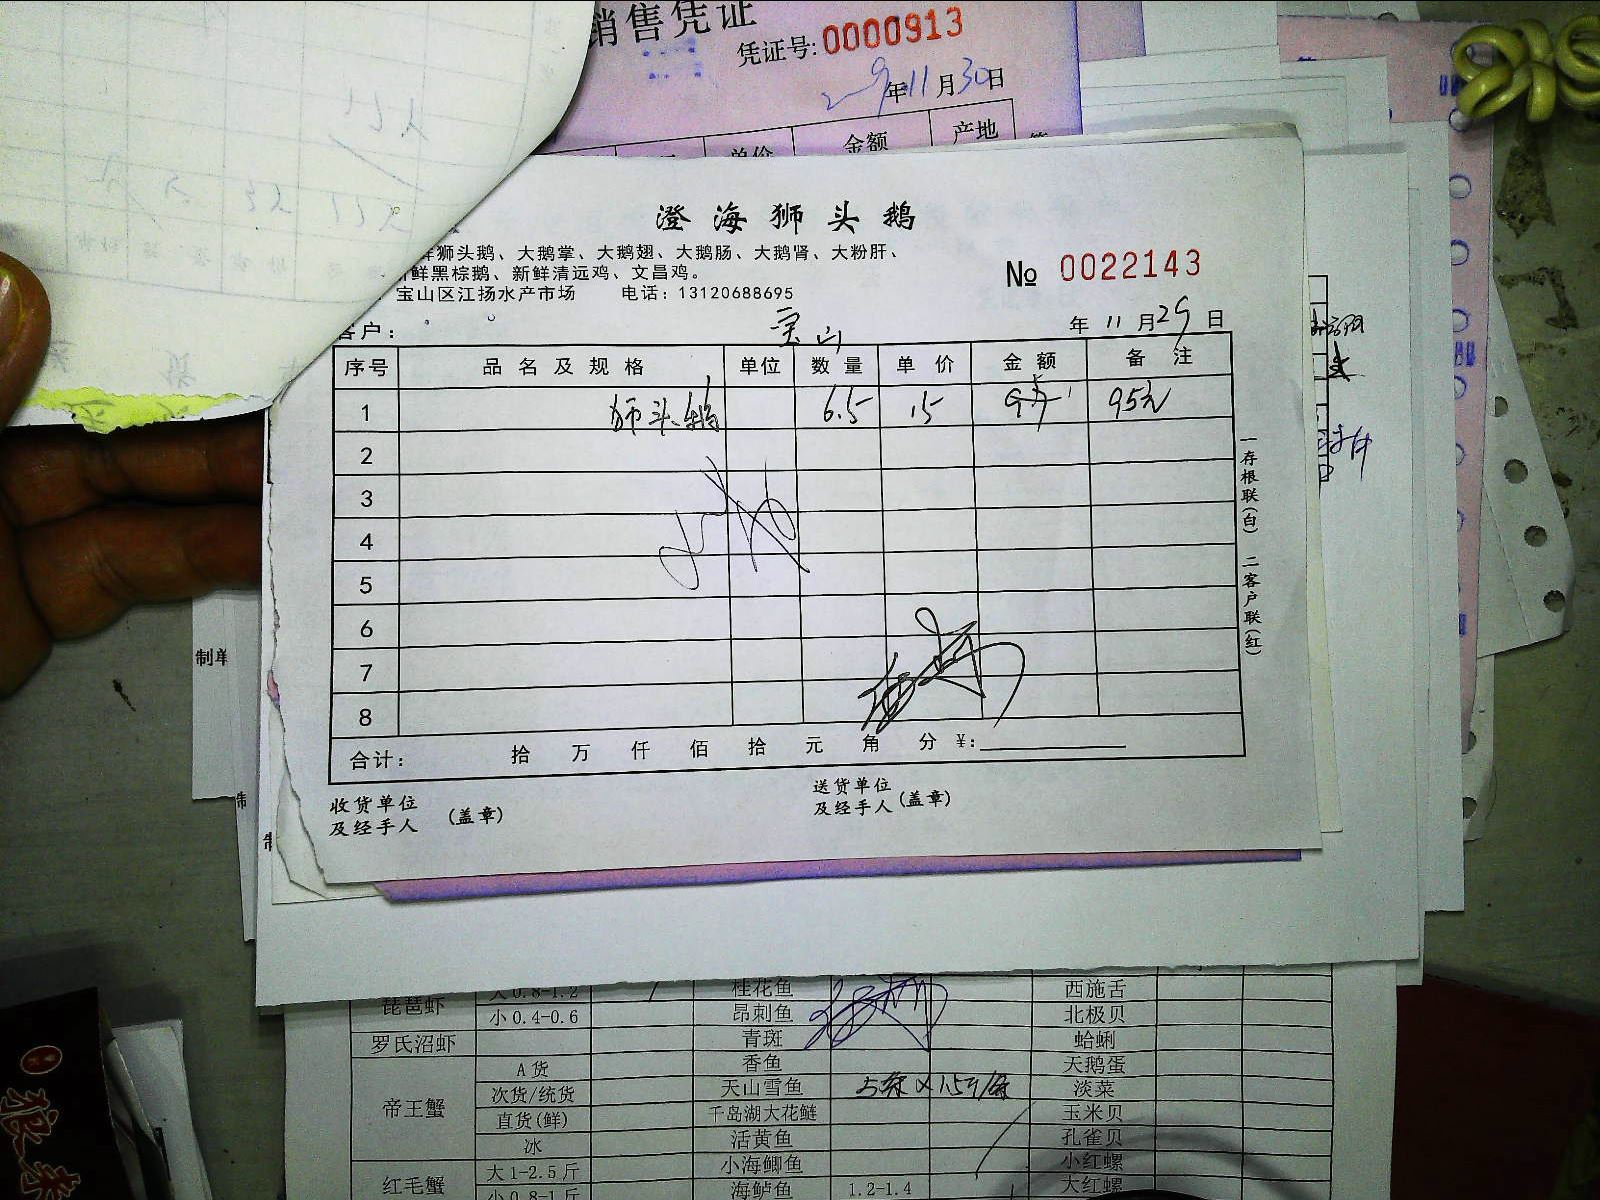 销售凭证
凭证号:0000913
年11月30日
单价 金额 产地
澄海狮头鹅
狮头鹅、大鹅掌、大鹅翅、大鹅肠、大鹅肾、大粉肝、
鲜黑棕鹅、新鲜清远鸡、文昌鸡。
宝山区江扬水产市场 电话:13120688695
№ 0022143
客户: 宝山 年 11 月 29 日
序号 品名及规格 单位 数量 单价 金额 备注
1 狮头鹅 6.5 15 95元
2
3
4
5
6
7
8
合计: 拾 万 仟 佰 拾 元 角 分 ¥:
收货单位
及经手人 (盖章)
送货单位
及经手人 (盖章)
一存根联(白) 二客户联(红)
制单
琵琶虾 大0.8-1.2 桂花鱼 西施舌
小0.4-0.6 昂刺鱼 北极贝
罗氏沼虾 青斑 蛤蜊
帝王蟹 A货 香鱼 天鹅蛋
次货/统货 天山雪鱼 淡菜
直货(鲜) 千岛湖大花鲢 玉米贝
冰 活黄鱼 孔雀贝
红毛蟹 大1-2.5斤 小海鲫鱼 小红螺
小0.8-1斤 海鲈鱼 1.2-1.4 大红螺